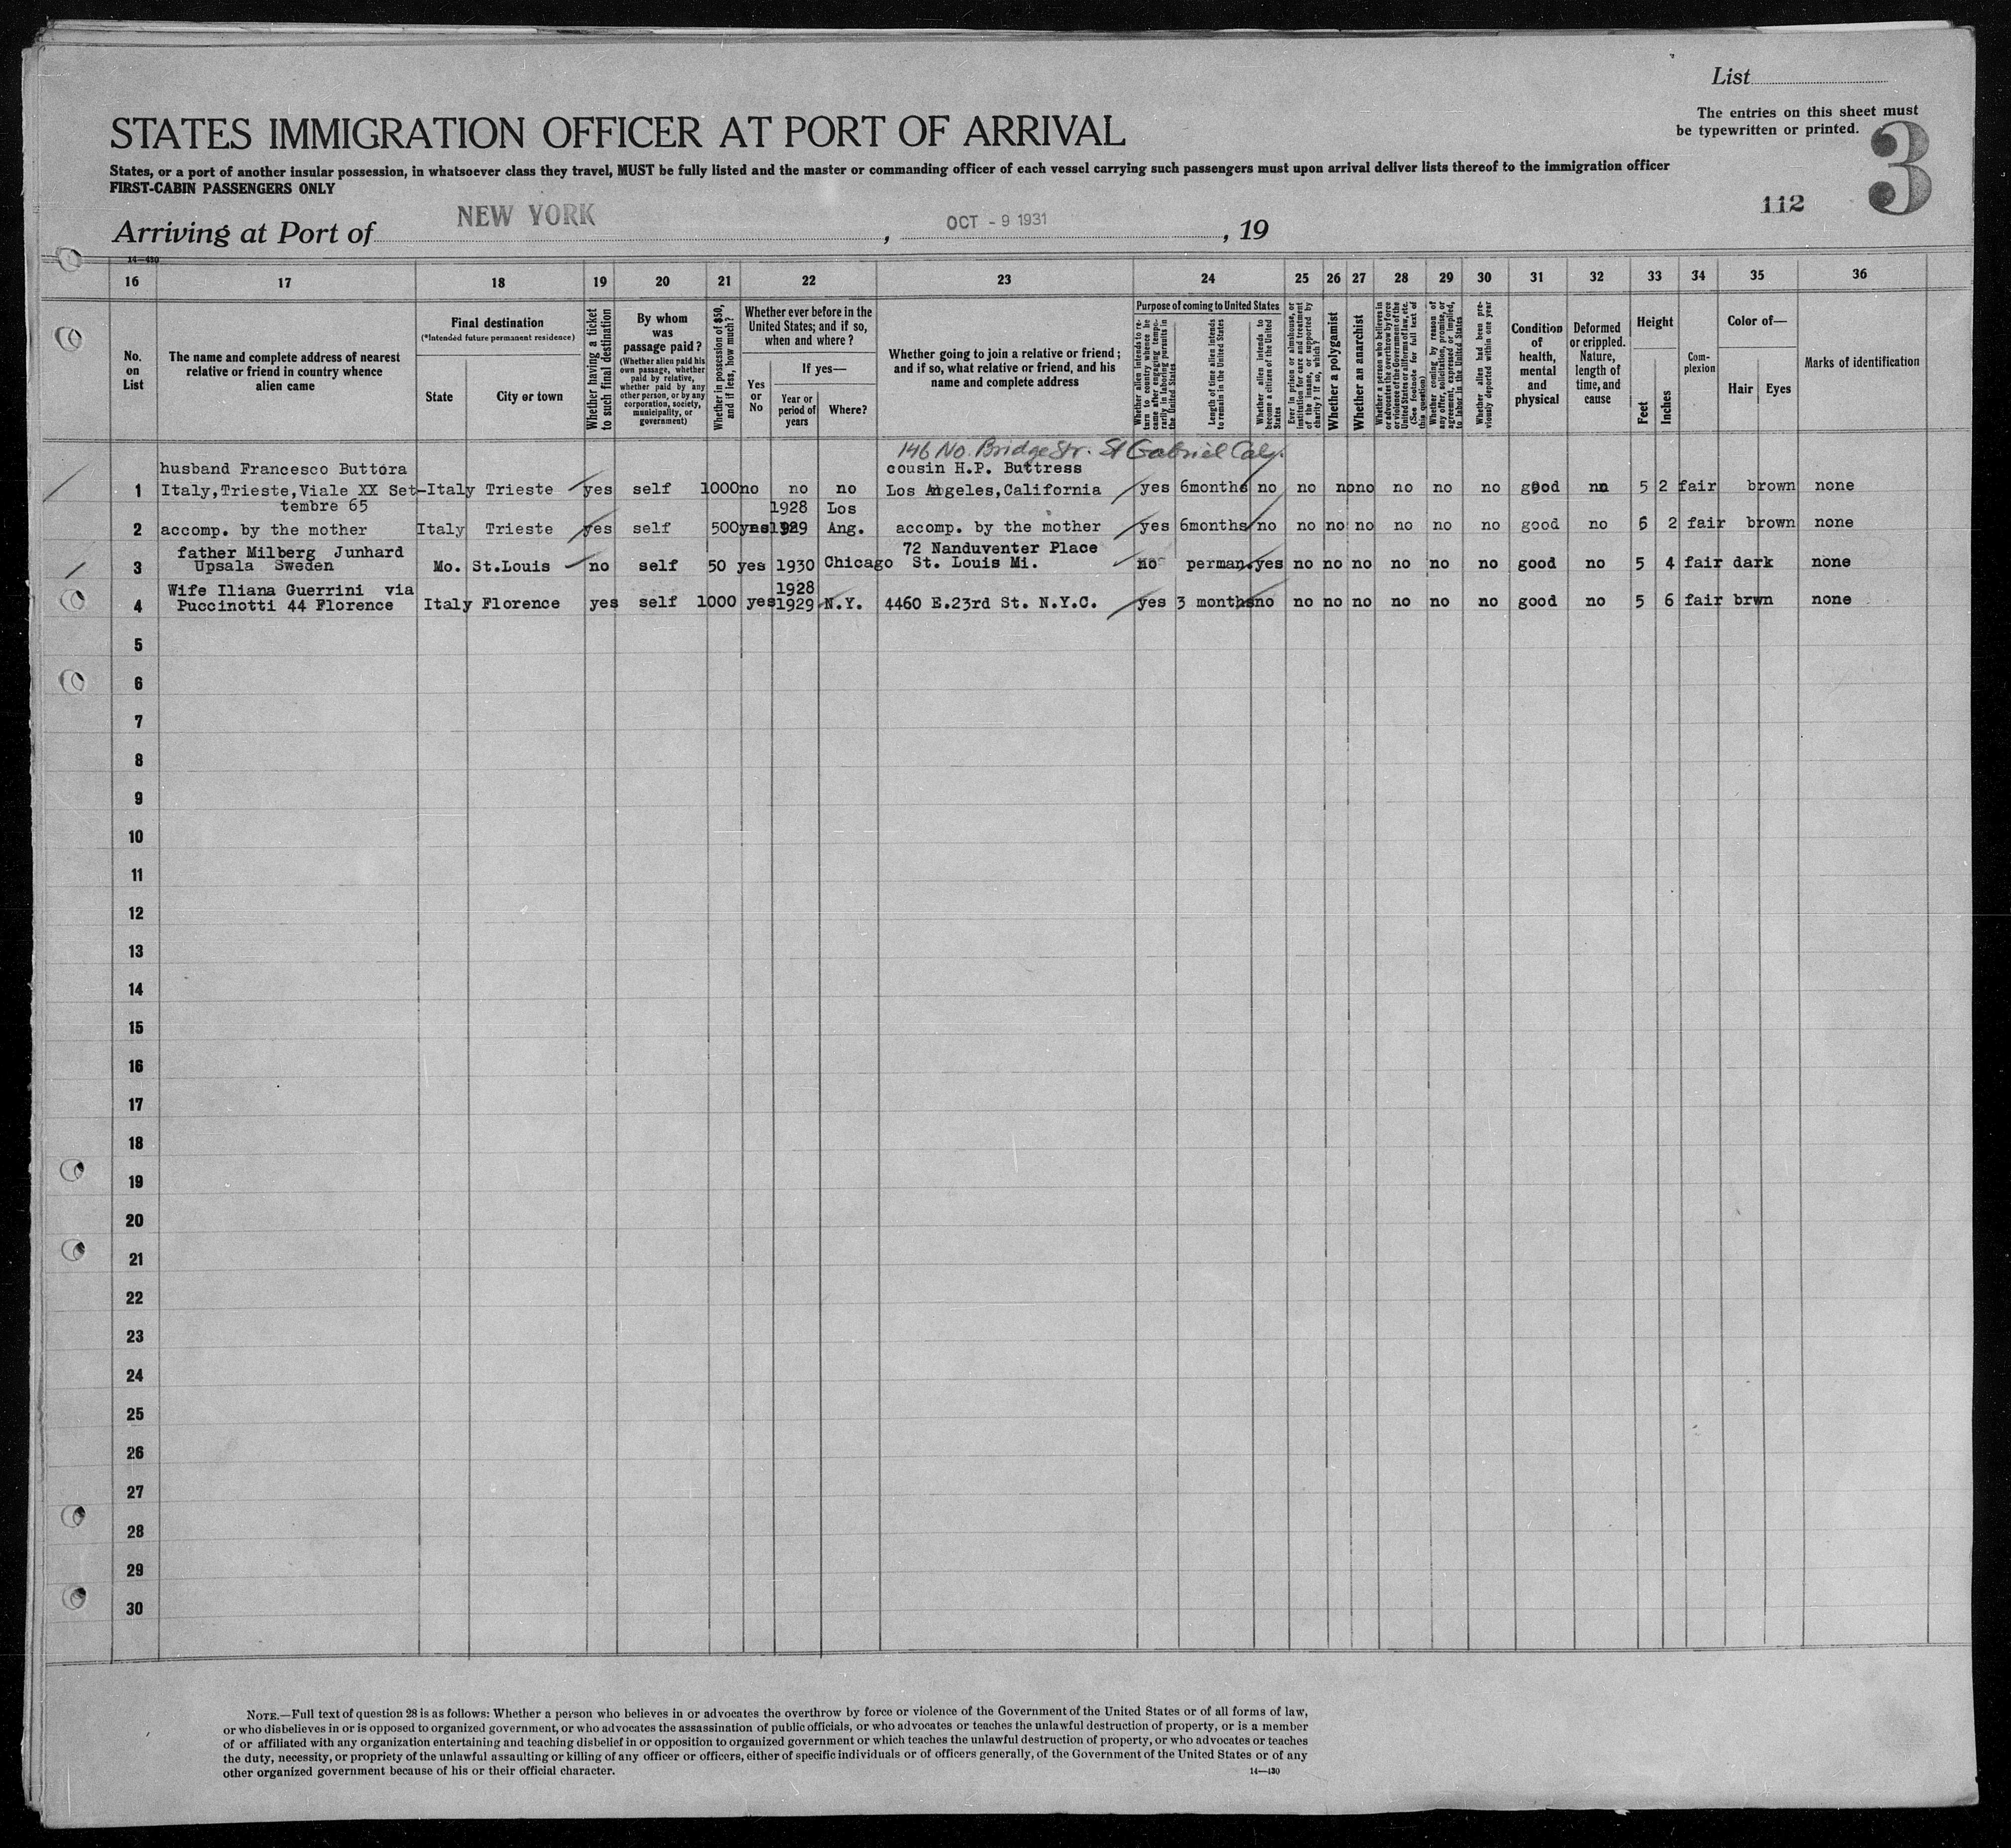 List
The entries on this sheet must
be typewritten or printed.
3
STATES IMMIGRATION OFFICER AT PORT OF ARRIVAL
States, or a port of another insular possession, in whatsoever class they travel, MUST be fully listed and the master or commanding officer of each vessel carrying such passengers must upon arrival deliver lists thereof to the immigration officer
FIRST-CABIN PASSENGERS ONLY
112
Arriving at Port of NEW YORK, OCT - 9 1931, 19
14—430
16 17 18 19 20 21 22 23 24 25 26 27 28 29 30 31 32 33 34 35 36
No. on List
The name and complete address of nearest relative or friend in country whence alien came
Final destination
(*Intended future permanent residence)
State
City or town
Whether having a ticket to such final destination
By whom was passage paid?
(Whether alien paid his own passage, whether paid by relative, whether paid by any other person, or by any corporation, society, municipality, or government)
Whether in possession of $50, and if less, how much?
Whether ever before in the United States; and if so, when and where?
Yes or No
If yes—
Year or period of years
Where?
Whether going to join a relative or friend; and if so, what relative or friend, and his name and complete address
Purpose of coming to United States
Whether alien intends to return to country whence he came after engaging temporarily in laboring pursuits in the United States
Length of time alien intends to remain in the United States
Whether alien intends to become a citizen of the United States
Ever in prison or almshouse, or institution for care and treatment of the insane, or supported by charity? If so, which?
Whether a polygamist
Whether an anarchist
Whether a person who believes in or advocates the overthrow by force or violence of the Government of the United States or all forms of law, etc. (See footnote for full text of this question)
Whether coming by reason of any offer, solicitation, promise, or agreement, expressed or implied, to labor in the United States
Whether alien had been previously deported within one year
Condition of health, mental and physical
Deformed or crippled. Nature, length of time, and cause
Height
Feet
Inches
Complexion
Color of—
Hair
Eyes
Marks of identification
146 No. Bridge Str. St Gabriel Caly.
husband Francesco Buttora cousin H.P. Buttress
1 Italy,Trieste,Viale XX Set-Italy Trieste yes self 1000 no no no Los Angeles,California yes 6months no no no no no no no good no 5 2 fair brown none
tembre 65 1928 Los
2 accomp. by the mother Italy Trieste yes self 500 yes 1929 Ang. accomp. by the mother yes 6months no no no no no no no good no 5 2 fair brown none
father Milberg Junhard 72 Nanduventer Place
3 Upsala Sweden Mo. St.Louis no self 50 yes 1930 Chicago St. Louis Mi. no perman. yes no no no no no no good no 5 4 fair dark none
Wife Iliana Guerrini via 1928
4 Puccinotti 44 Florence Italy Florence yes self 1000 yes 1929 N.Y. 4460 E.23rd St. N.Y.C. yes 3 months no no no no no no no good no 5 6 fair brwn none
5
6
7
8
9
10
11
12
13
14
15
16
17
18
19
20
21
22
23
24
25
26
27
28
29
30
NOTE.—Full text of question 28 is as follows: Whether a person who believes in or advocates the overthrow by force or violence of the Government of the United States or of all forms of law,
or who disbelieves in or is opposed to organized government, or who advocates the assassination of public officials, or who advocates or teaches the unlawful destruction of property, or is a member
of or affiliated with any organization entertaining and teaching disbelief in or opposition to organized government or which teaches the unlawful destruction of property, or who advocates or teaches
the duty, necessity, or propriety of the unlawful assaulting or killing of any officer or officers, either of specific individuals or of officers generally, of the Government of the United States or of any
other organized government because of his or their official character.
14—430